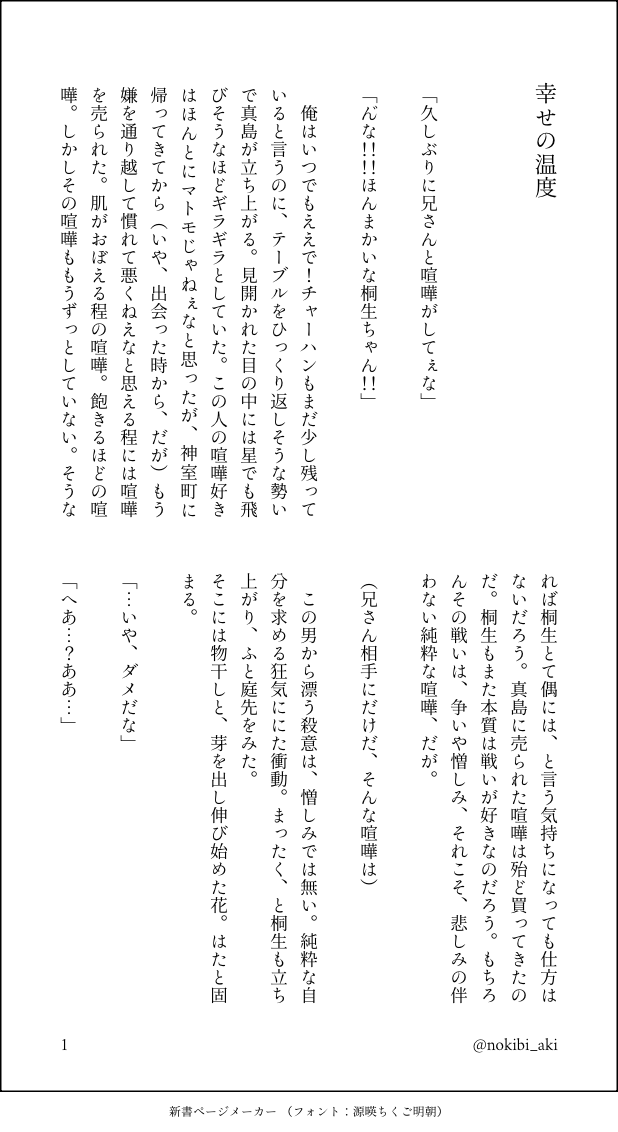 幸せの温度
「久しぶりに兄さんと喧嘩がしてぇな」
「んな!!!ほんまかいな桐生ちゃん!!」
俺はいつでもええで！チャーハンもまだ少し残って
いると言うのに、テーブルをひっくり返しそうな勢い
で真島が立ち上がる。見開かれた目の中には星でも飛
びそうなほどギラギラとしていた。この人の喧嘩好き
はほんとにマトモじゃねぇなと思ったが、神室町に
帰ってきてから（いや、出会った時から、だが）もう
嫌を通り越して慣れて悪くねえなと思える程には喧嘩
を売られた。肌がおぼえる程の喧嘩。飽きるほどの喧
嘩。しかしその喧嘩ももうずっとしていない。そうな
れば桐生とて偶には、と言う気持ちになっても仕方は
ないだろう。真島に売られた喧嘩は殆ど買ってきたの
だ。桐生もまた本質は戦いが好きなのだろう。もちろ
んその戦いは、争いや憎しみ、それこそ、悲しみの伴
わない純粋な喧嘩、だが。
（兄さん相手にだけだ、そんな喧嘩は）
この男から漂う殺意は、憎しみでは無い。純粋な自
分を求める狂気ににた衝動。まったく、と桐生も立ち
上がり、ふと庭先をみた。
そこには物干しと、芽を出し伸び始めた花。はたと固
まる。
「…いや、ダメだな」
「へあ…？ああ…」
1
@nokibi_aki
新書ページメーカー （フォント：源暎ちくご明朝）